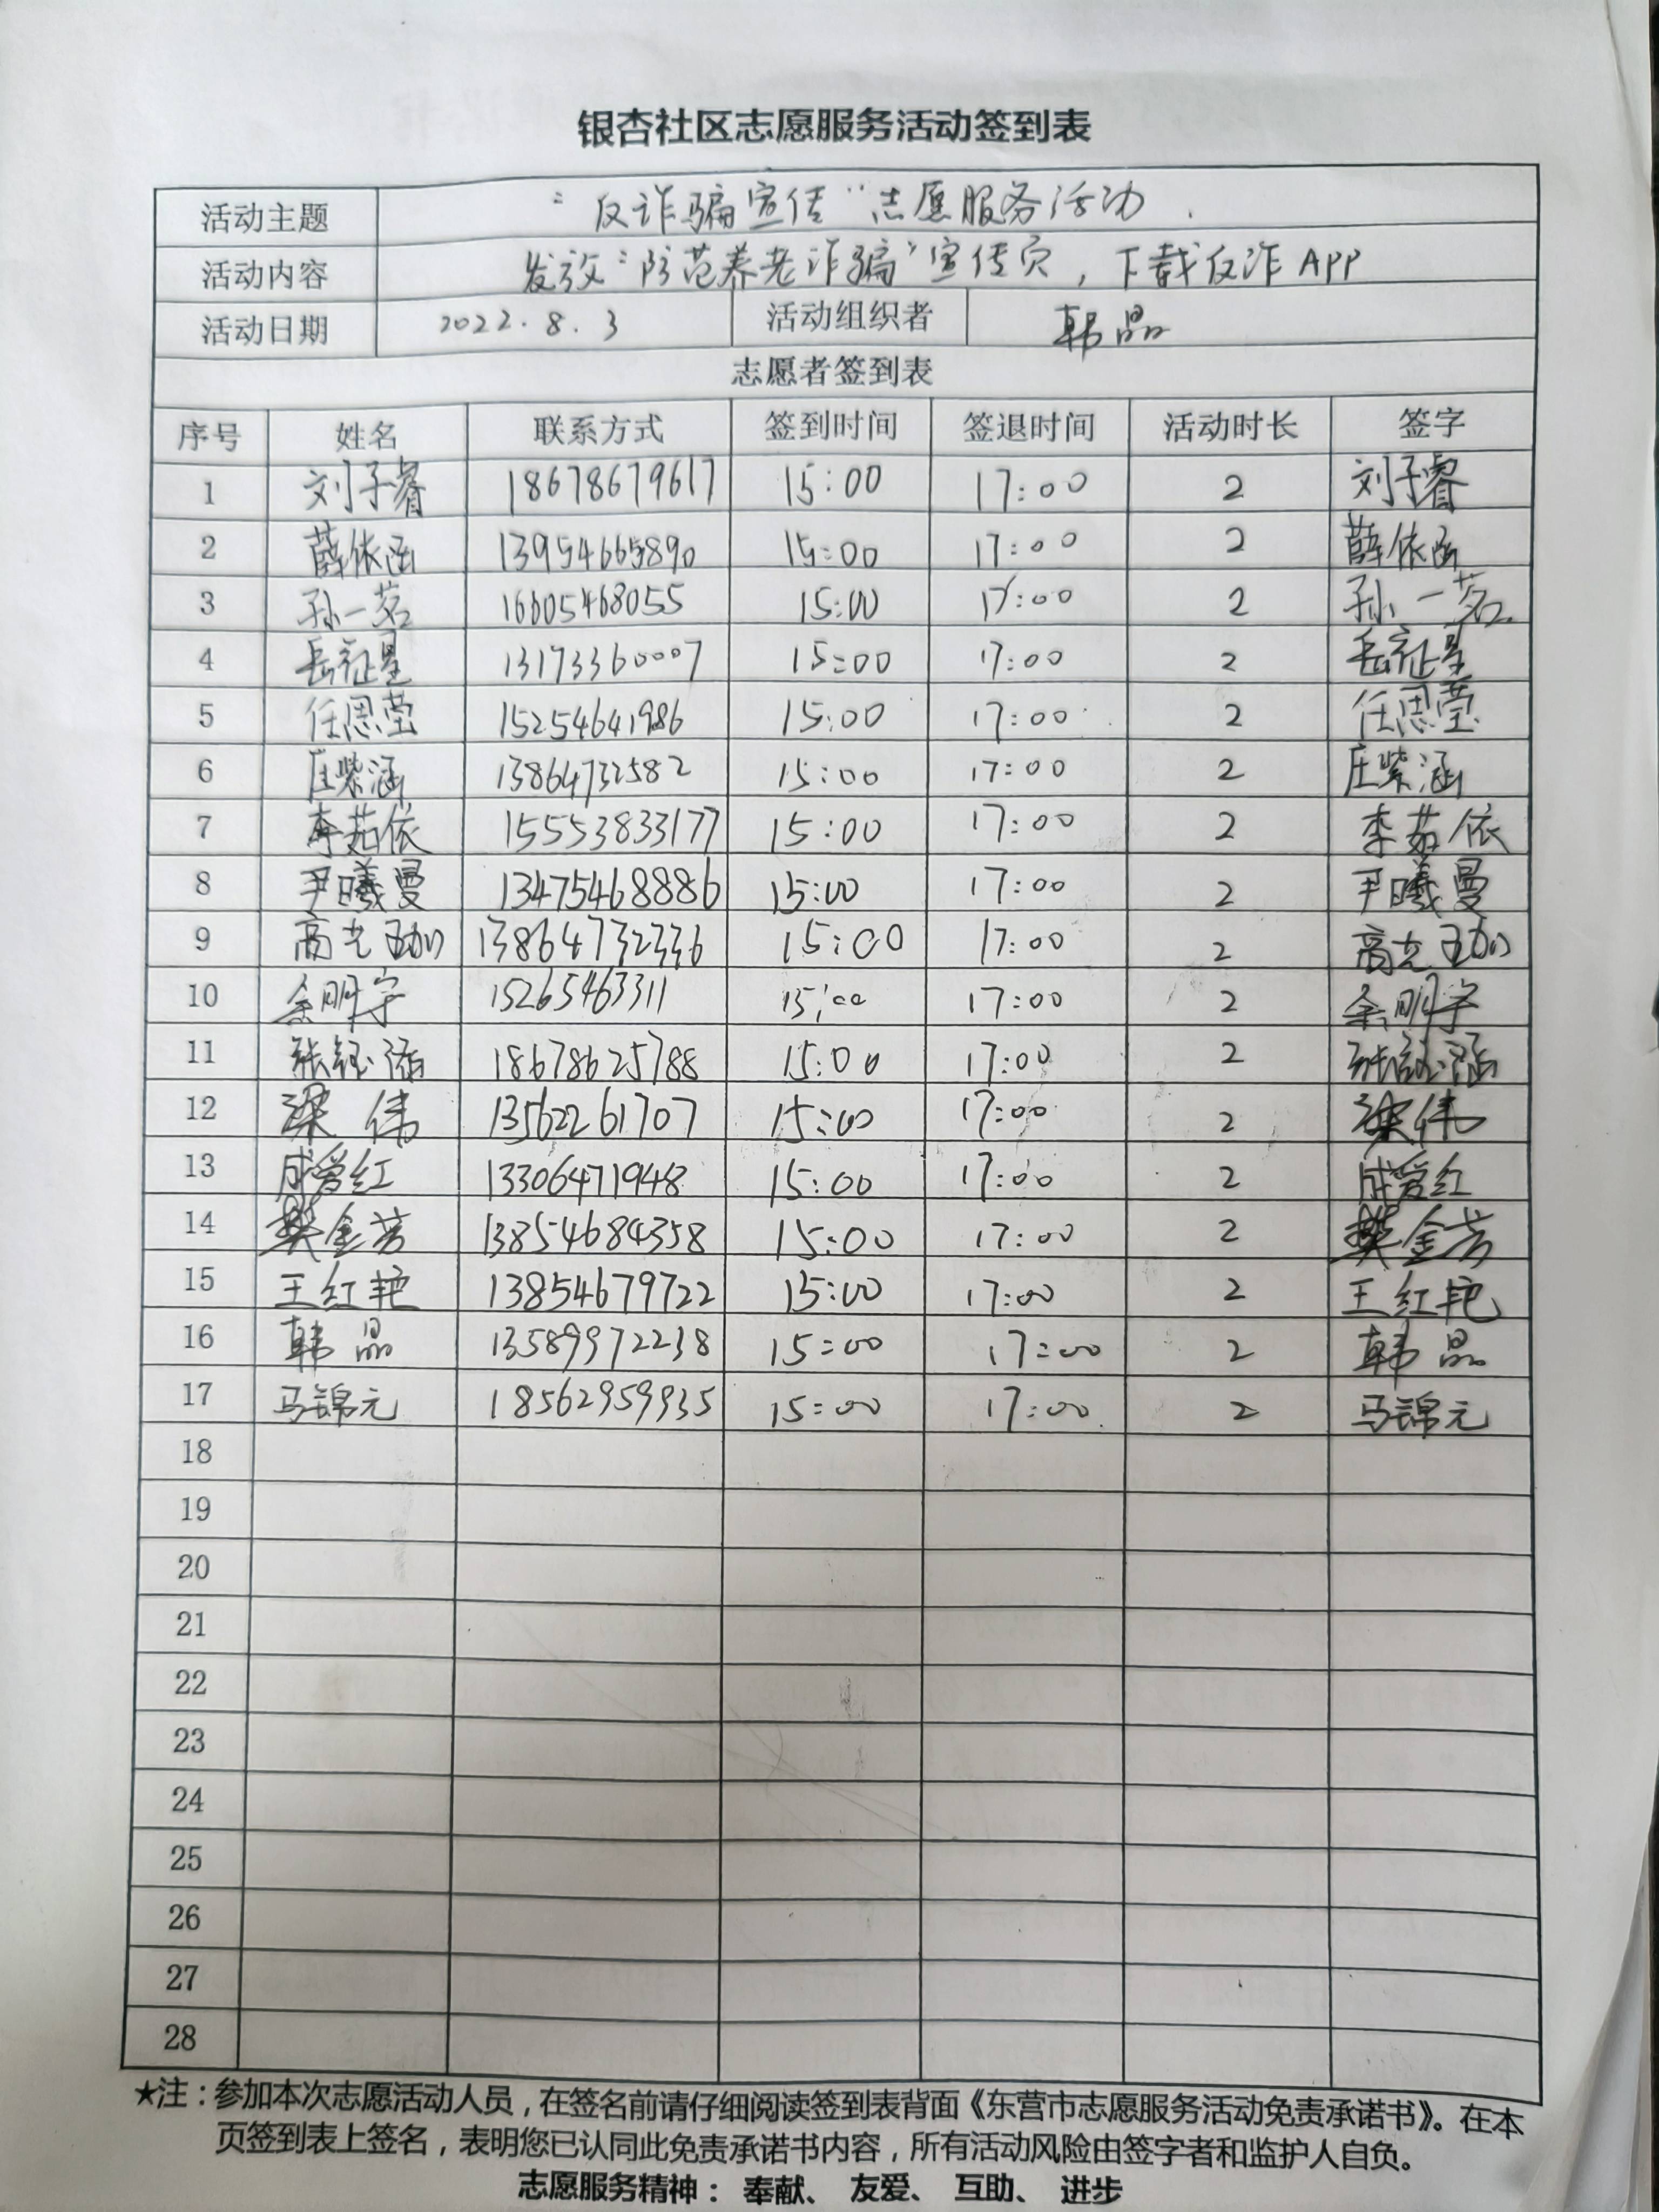 银杏社区志愿服务活动签到表
活动主题 “反诈骗宣传”志愿服务活动
活动内容 发放“防范养老诈骗”宣传页，下载反诈APP
活动日期 2022.8.3 活动组织者 韩晶
志愿者签到表
序号 姓名 联系方式 签到时间 签退时间 活动时长 签字
1 刘子睿 18678679617 15:00 17:00 2 刘子睿
2 薛依函 13954665890 15:00 17:00 2 薛依函
3 孙一茗 16605468055 15:00 17:00 2 孙一茗
4 岳征星 13173360007 15:00 17:00 2 岳征星
5 任思莹 15254641986 15:00 17:00 2 任思莹
6 庄紫涵 13864732582 15:00 17:00 2 庄紫涵
7 李茹依 15553833177 15:00 17:00 2 李茹依
8 尹曦曼 13475468886 15:00 17:00 2 尹曦曼
9 高艺珈 13864732336 15:00 17:00 2 高艺珈
10 余明宇 15265463311 15:00 17:00 2 余明宇
11 张钰涵 18678625788 15:00 17:00 2 张钰涵
12 梁伟 13562261707 15:00 17:00 2 梁伟
13 成爱红 13306471948 15:00 17:00 2 成爱红
14 樊金芳 13854684358 15:00 17:00 2 樊金芳
15 王红艳 13854679722 15:00 17:00 2 王红艳
16 韩晶 13589972238 15:00 17:00 2 韩晶
17 马锦元 18562959935 15:00 17:00 2 马锦元
18
19
20
21
22
23
24
25
26
27
28
★注：参加本次志愿活动人员，在签名前请仔细阅读签到表背面《东营市志愿服务活动免责承诺书》。在本
页签到表上签名，表明您已认同此免责承诺书内容，所有活动风险由签字者和监护人自负。
志愿服务精神： 奉献、 友爱、 互助、 进步